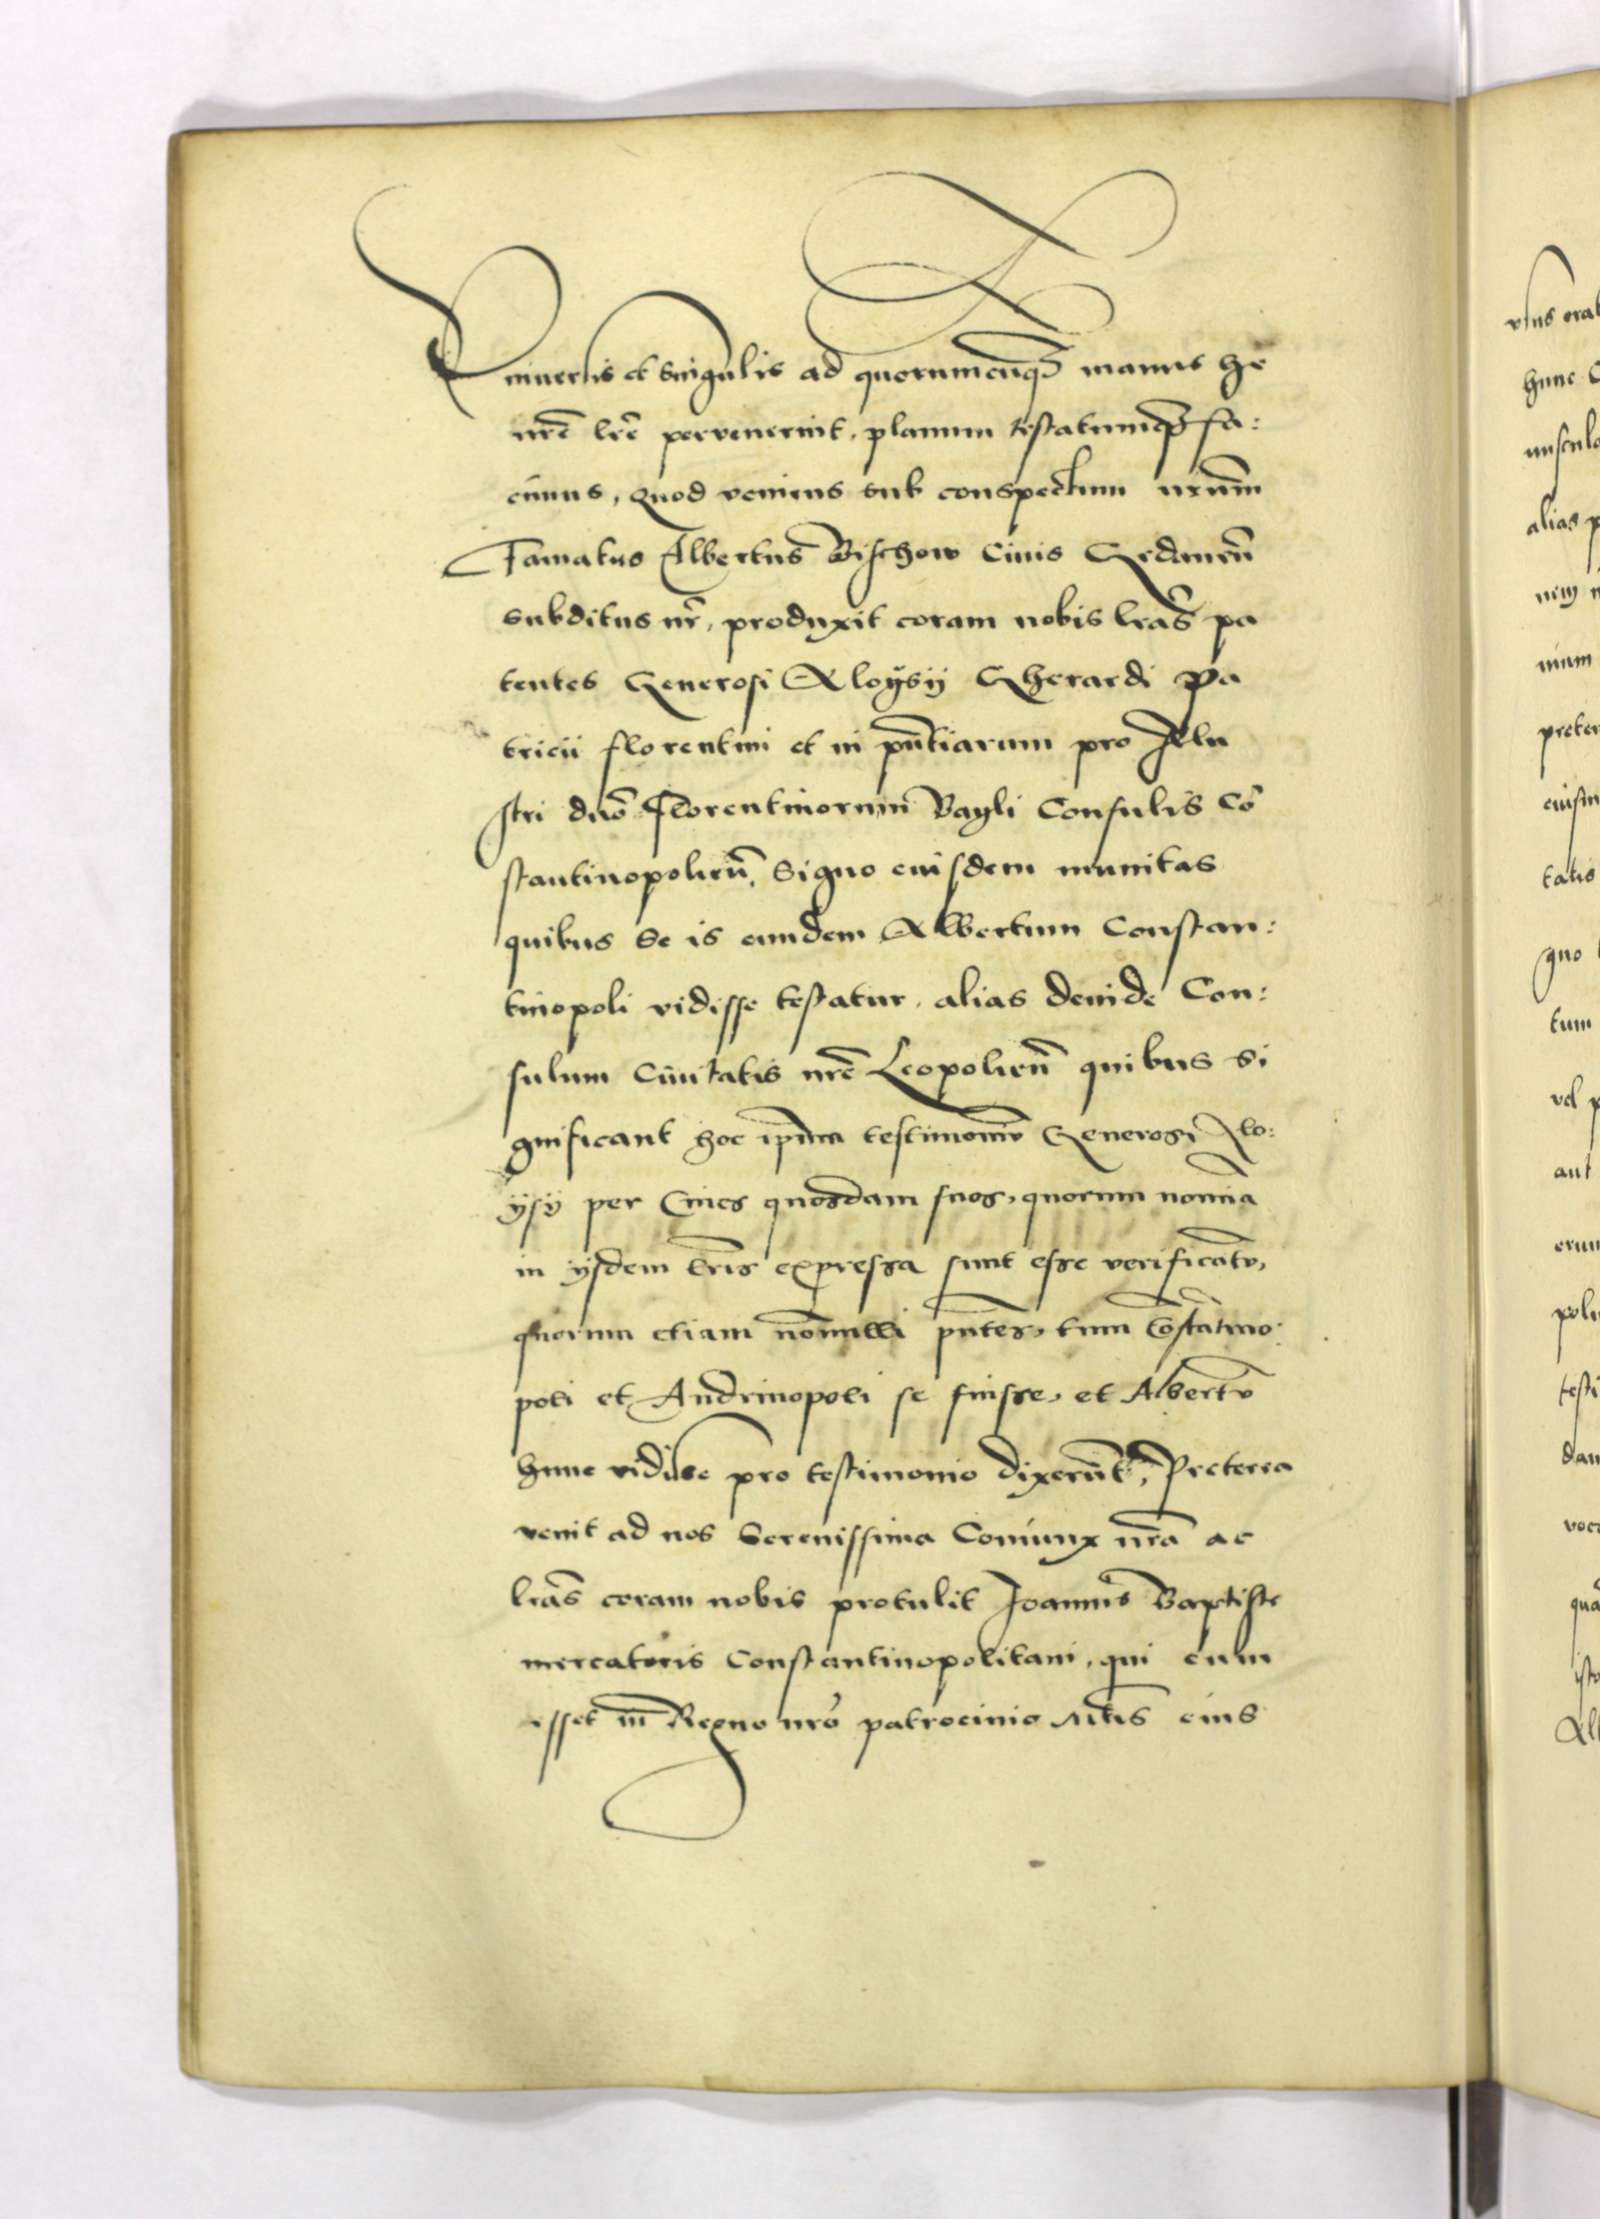 Vniuersis et singulis ad quorumcunq̃ manus hę
nrẽ lrẽ peruenerint, planum testatumq̃ fa:
cimus, quod veniens sub conspectum nrum̃
Famatus Albertus Bischow Ciuis Gedaneñ
subditus nr̃, produxit coram nobis lrãs pa
tentes Generosi Aloysij Gherardi Pa
tricii florentini et in pñtiarum pro Illu
stri dnõ Florentinorum Bayli Consulis Cõ
stantinopolieñ, Signo eiusdem munitas
quibus Se is eundem Albertum Constan:
tinopoli vidisse testatur, alias deinde Con:
sulum Ciuitatis nrẽ Leopolieñ quibus Si
gnificant hoc ipm̃ testimoniũ Generosi Alo:
ysij per Ciues quosdam suos, quorum nomĩa
in ijsdem lrĩs expressa sunt esse verificatũ,
quorum etiam nõnulli pñtes, tum Cõstãtino:
poli et Andrinopoli se fuisse, et Albertũ
hunc vidisse pro testimonio dixerũt, Preterea
venit ad nos Serenissima Coniunx nrã ac
lrãs coram nobis protulit Joannis Baptiste
mercatoris Constantinopolitani, qui cum
esset in Regno nrõ patrocinio Mtis eius